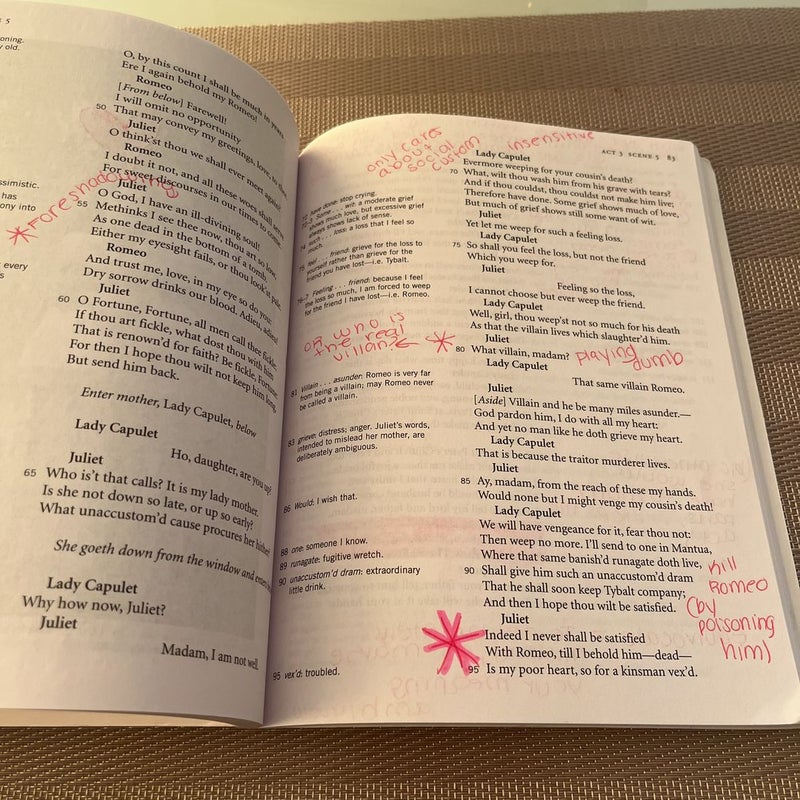 E 5
oning.
y old.
O, by this count I shall be much in years
Ere I again behold my Romeo!
Romeo
[From below] Farewell!
I will omit no opportunity
50 That may convey my greetings, love, to thee.
Juliet
O think'st thou we shall ever meet again?
Romeo
I doubt it not, and all these woes shall serve
For sweet discourses in our times to come.
Juliet
O God, I have an ill-divining soul!
55 Methinks I see thee now, thou art so low,
As one dead in the bottom of a tomb.
Either my eyesight fails, or thou look'st pale.
Romeo
And trust me, love, in my eye so do you.
Dry sorrow drinks our blood. Adieu, adieu!
Juliet
60 O Fortune, Fortune, all men call thee fickle;
If thou art fickle, what dost thou with him
That is renown'd for faith? Be fickle, Fortune:
For then I hope thou wilt not keep him long,
But send him back.
Enter mother, Lady Capulet, below
Lady Capulet
Ho, daughter, are you up?
Juliet
65 Who is't that calls? It is my lady mother.
Is she not down so late, or up so early?
What unaccustom'd cause procures her hither?
She goeth down from the window and enters
Lady Capulet
Why how now, Juliet?
Juliet
Madam, I am not well.
ssimistic.
has
ony into
every
s
*Foreshadowing
only cares
about
social
custom
insensitive
ACT 3 SCENE 5 83
Lady Capulet
Evermore weeping for your cousin's death?
70 What, wilt thou wash him from his grave with tears?
And if thou couldst, thou couldst not make him live;
Therefore have done. Some grief shows much of love,
But much of grief shows still some want of wit.
Juliet
Yet let me weep for such a feeling loss.
Lady Capulet
75 So shall you feel the loss, but not the friend
Which you weep for.
Juliet
Feeling so the loss,
I cannot choose but ever weep the friend.
Lady Capulet
Well, girl, thou weep'st not so much for his death
As that the villain lives which slaughter'd him.
Juliet
80 What villain, madam?
playing
dumb
Lady Capulet
That same villain Romeo.
Juliet
[Aside] Villain and he be many miles asunder.—
God pardon him, I do with all my heart:
And yet no man like he doth grieve my heart.
Lady Capulet
That is because the traitor murderer lives.
Juliet
85 Ay, madam, from the reach of these my hands.
Would none but I might venge my cousin's death!
Lady Capulet
We will have vengeance for it, fear thou not:
Then weep no more. I'll send to one in Mantua,
Where that same banish'd runagate doth live,
90 Shall give him such an unaccustom'd dram
That he shall soon keep Tybalt company;
And then I hope thou wilt be satisfied.
Juliet
Indeed I never shall be satisfied
With Romeo, till I behold him—dead—
95 Is my poor heart, so for a kinsman vex'd.
kill
Romeo
(by
poisoning
him)
have done: stop crying.
Some . . . wit: a moderate grief
shows much love, but excessive grief
always shows lack of sense.
such . . . loss: a loss that I feel so
much.
75 feel . . . friend: grieve for the loss to
yourself rather than grieve for the
friend you have lost—i.e. Tybalt.
Feeling . . . friend: because I feel
the loss so much, I am forced to weep
for the friend I have lost—i.e. Romeo.
or who is
the real
villain
81 Villain . . . asunder: Romeo is very far
from being a villain; may Romeo never
be called a villain.
83 grieve: distress; anger. Juliet's words,
intended to mislead her mother, are
deliberately ambiguous.
86 Would: I wish that.
88 one: someone I know.
89 runagate: fugitive wretch.
90 unaccustom'd dram: extraordinary
little drink.
95 vex'd: troubled.